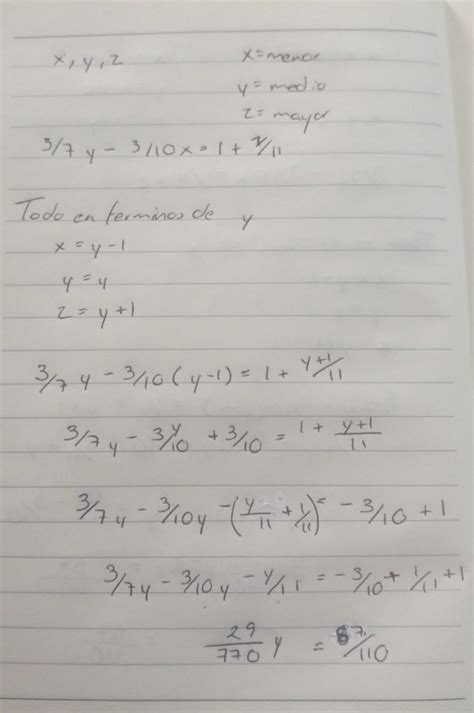 x, y, z x = menor
y = medio
z = mayor
3/7 y - 3/10 x = 1 + z/11
Todo en terminos de y
x = y - 1
y = y
z = y + 1
3/7 y - 3/10 ( y - 1 ) = 1 + y+1/11
3/7 y - 3y/10 + 3/10 = 1 + y+1/11
3/7 y - 3/10 y - ( y/11 + 1/11 ) = - 3/10 + 1
3/7 y - 3/10 y - y/11 = - 3/10 + 1/11 + 1
29/770 y = 87/110